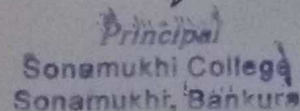 Principal
Sonamukhi College
Sonamukhi, Bankura